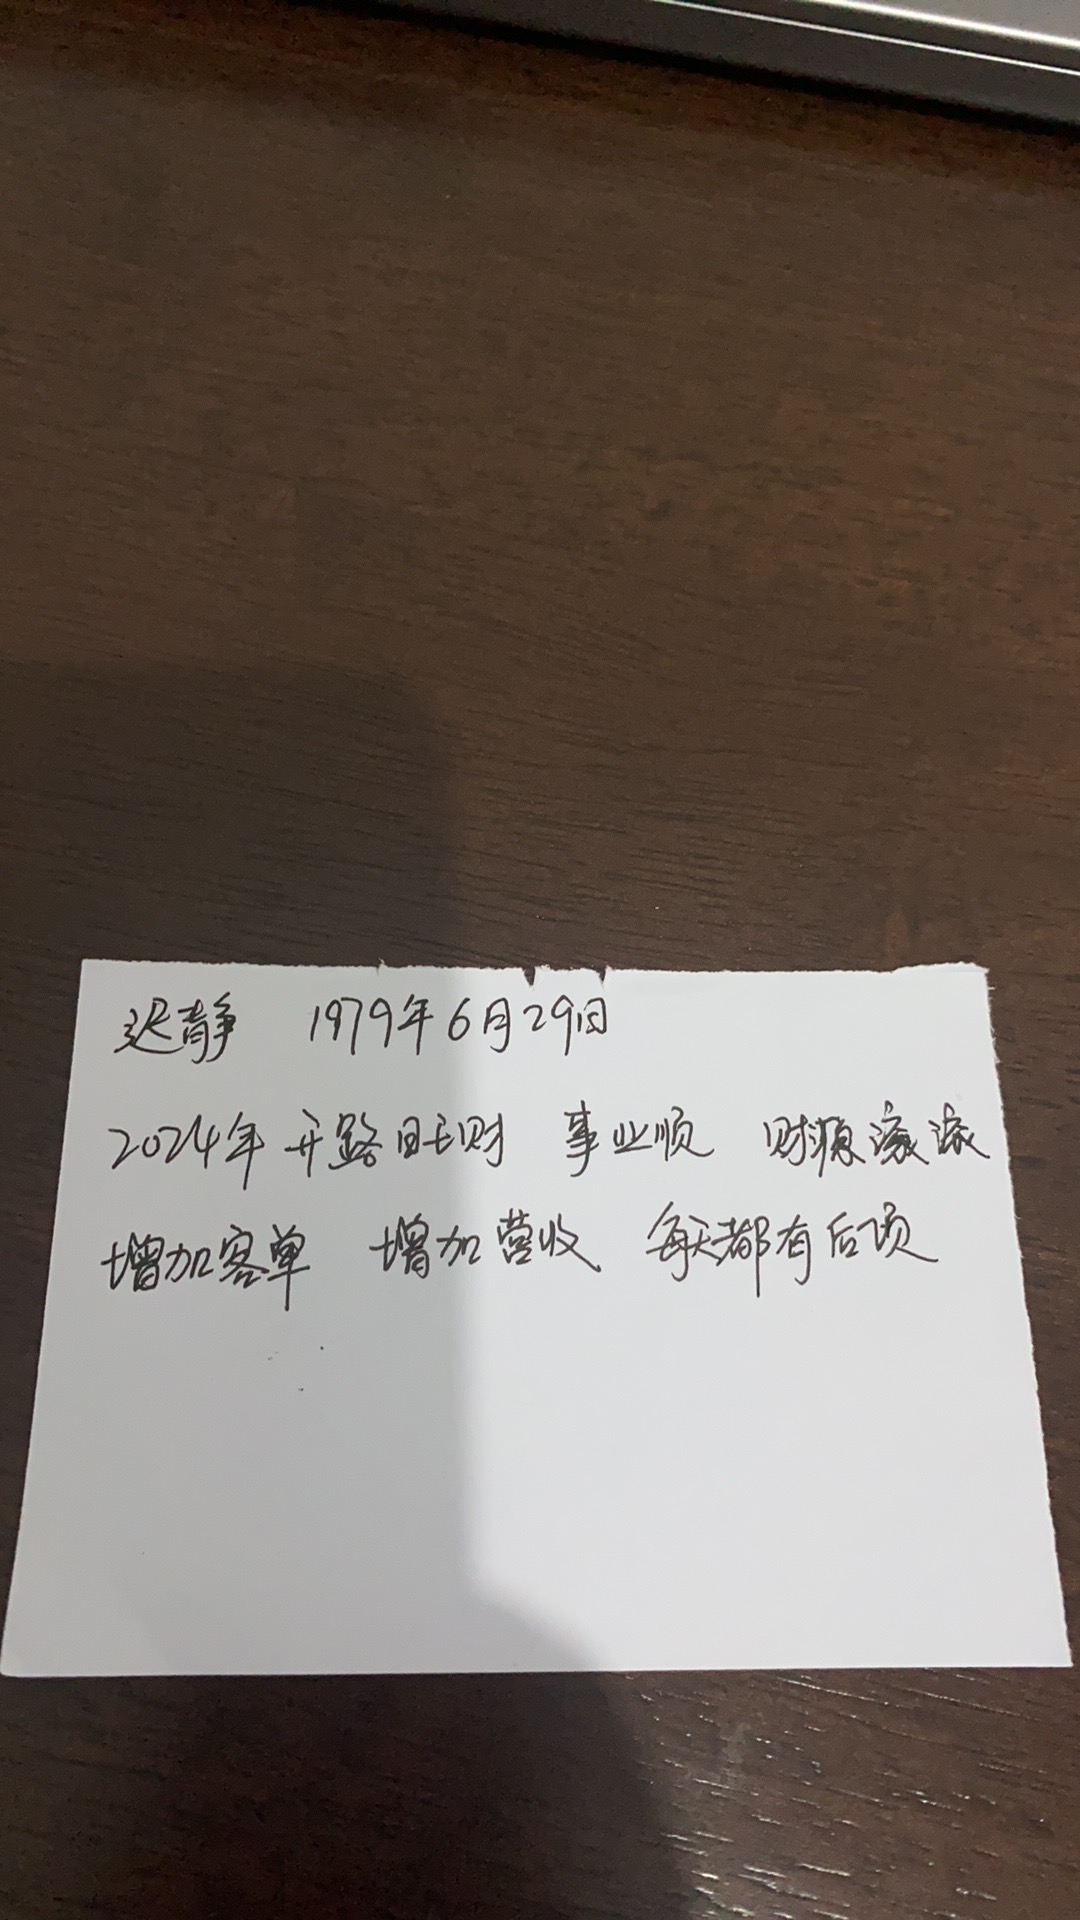 迟静 1979年6月29日
2024年 开路旺财 事业顺 财源滚滚
增加客单 增加营收 每天都有后项